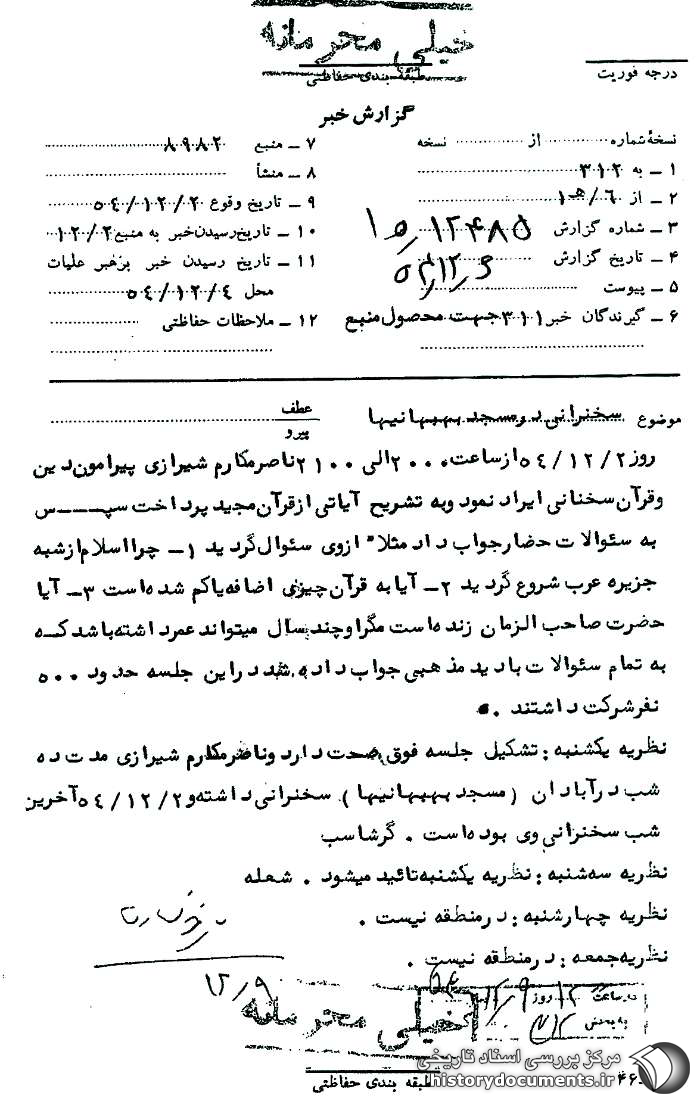 خیلی محرمانه
طبقه بندی حفاظتی
درجه فوریت
گزارش خبر
نسخهٔ شماره ............ از ............ نسخه
۱ – به ۳۱۲
۲ – از ۶/هـ۱
۳ – شماره گزارش ۱۲۴۸۵/۱۵
۴ – تاریخ گزارش ۵۴/۱۲/۶
۵ – پیوست
۶ – گیرندگان خبر ۳۱۱ جهت محصول منبع
۷ – منبع ۸۹۸۲
۸ – منشأ
۹ – تاریخ وقوع ۵۴/۱۲/۲
۱۰ – تاریخ رسیدن خبر به منبع ۱۲/۲
۱۱ – تاریخ رسیدن خبر برهبر علیات
محل ۵۴/۱۲/۴
۱۲ – ملاحظات حفاظتی
موضوع سخنرانی در مسجد بهبهانیها
عطف
پیرو
روز ۵۴/۱۲/۲ از ساعت ۲۰۰۰ الی ۲۱۰۰ ناصر مکارم شیرازی پیرامون دین
و قرآن سخنانی ایراد نمود و به تشریح آیاتی از قرآن مجید پرداخت سپس
به سئوالات حضار جواب داد مثلا" از وی سئوال گردید ۱– چرا اسلام از شبه
جزیره عرب شروع گردید ۲– آیا به قرآن چیزی اضافه یا کم شده است ۳– آیا
حضرت صاحب الزمان زنده است مگر او چند سال میتواند عمر داشته باشد که
به تمام سئوالات با دید مذهبی جواب داده شد در این جلسه حدود ۵۰۰
نفر شرکت داشتند .
نظریه یکشنبه : تشکیل جلسه فوق صحت دارد و ناصر مکارم شیرازی مدت ده
شب در آبادان (مسجد بهبهانیها) سخنرانی داشته و ۵۴/۱۲/۲ آخرین
شب سخنرانی وی بوده است . گرشاسب
نظریه سه شنبه : نظریه یکشنبه تائید میشود . شعله
نظریه چهارشنبه : در منطقه نیست .
نظریه جمعه : در منطقه نیست .
۱۲/۹
در ساعت ۱۲ روز ۱۲/۹ ۵۴
به بخش ۳۱۲
خیلی محرمانه
طبقه بندی حفاظتی
۴۶
مرکز بررسی اسناد تاریخی
historydocuments.ir